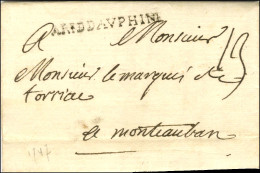 AR.DEDAVPHINE
A Monsieur 13
Monsieur le marquis de
torriac
a montauban
1747